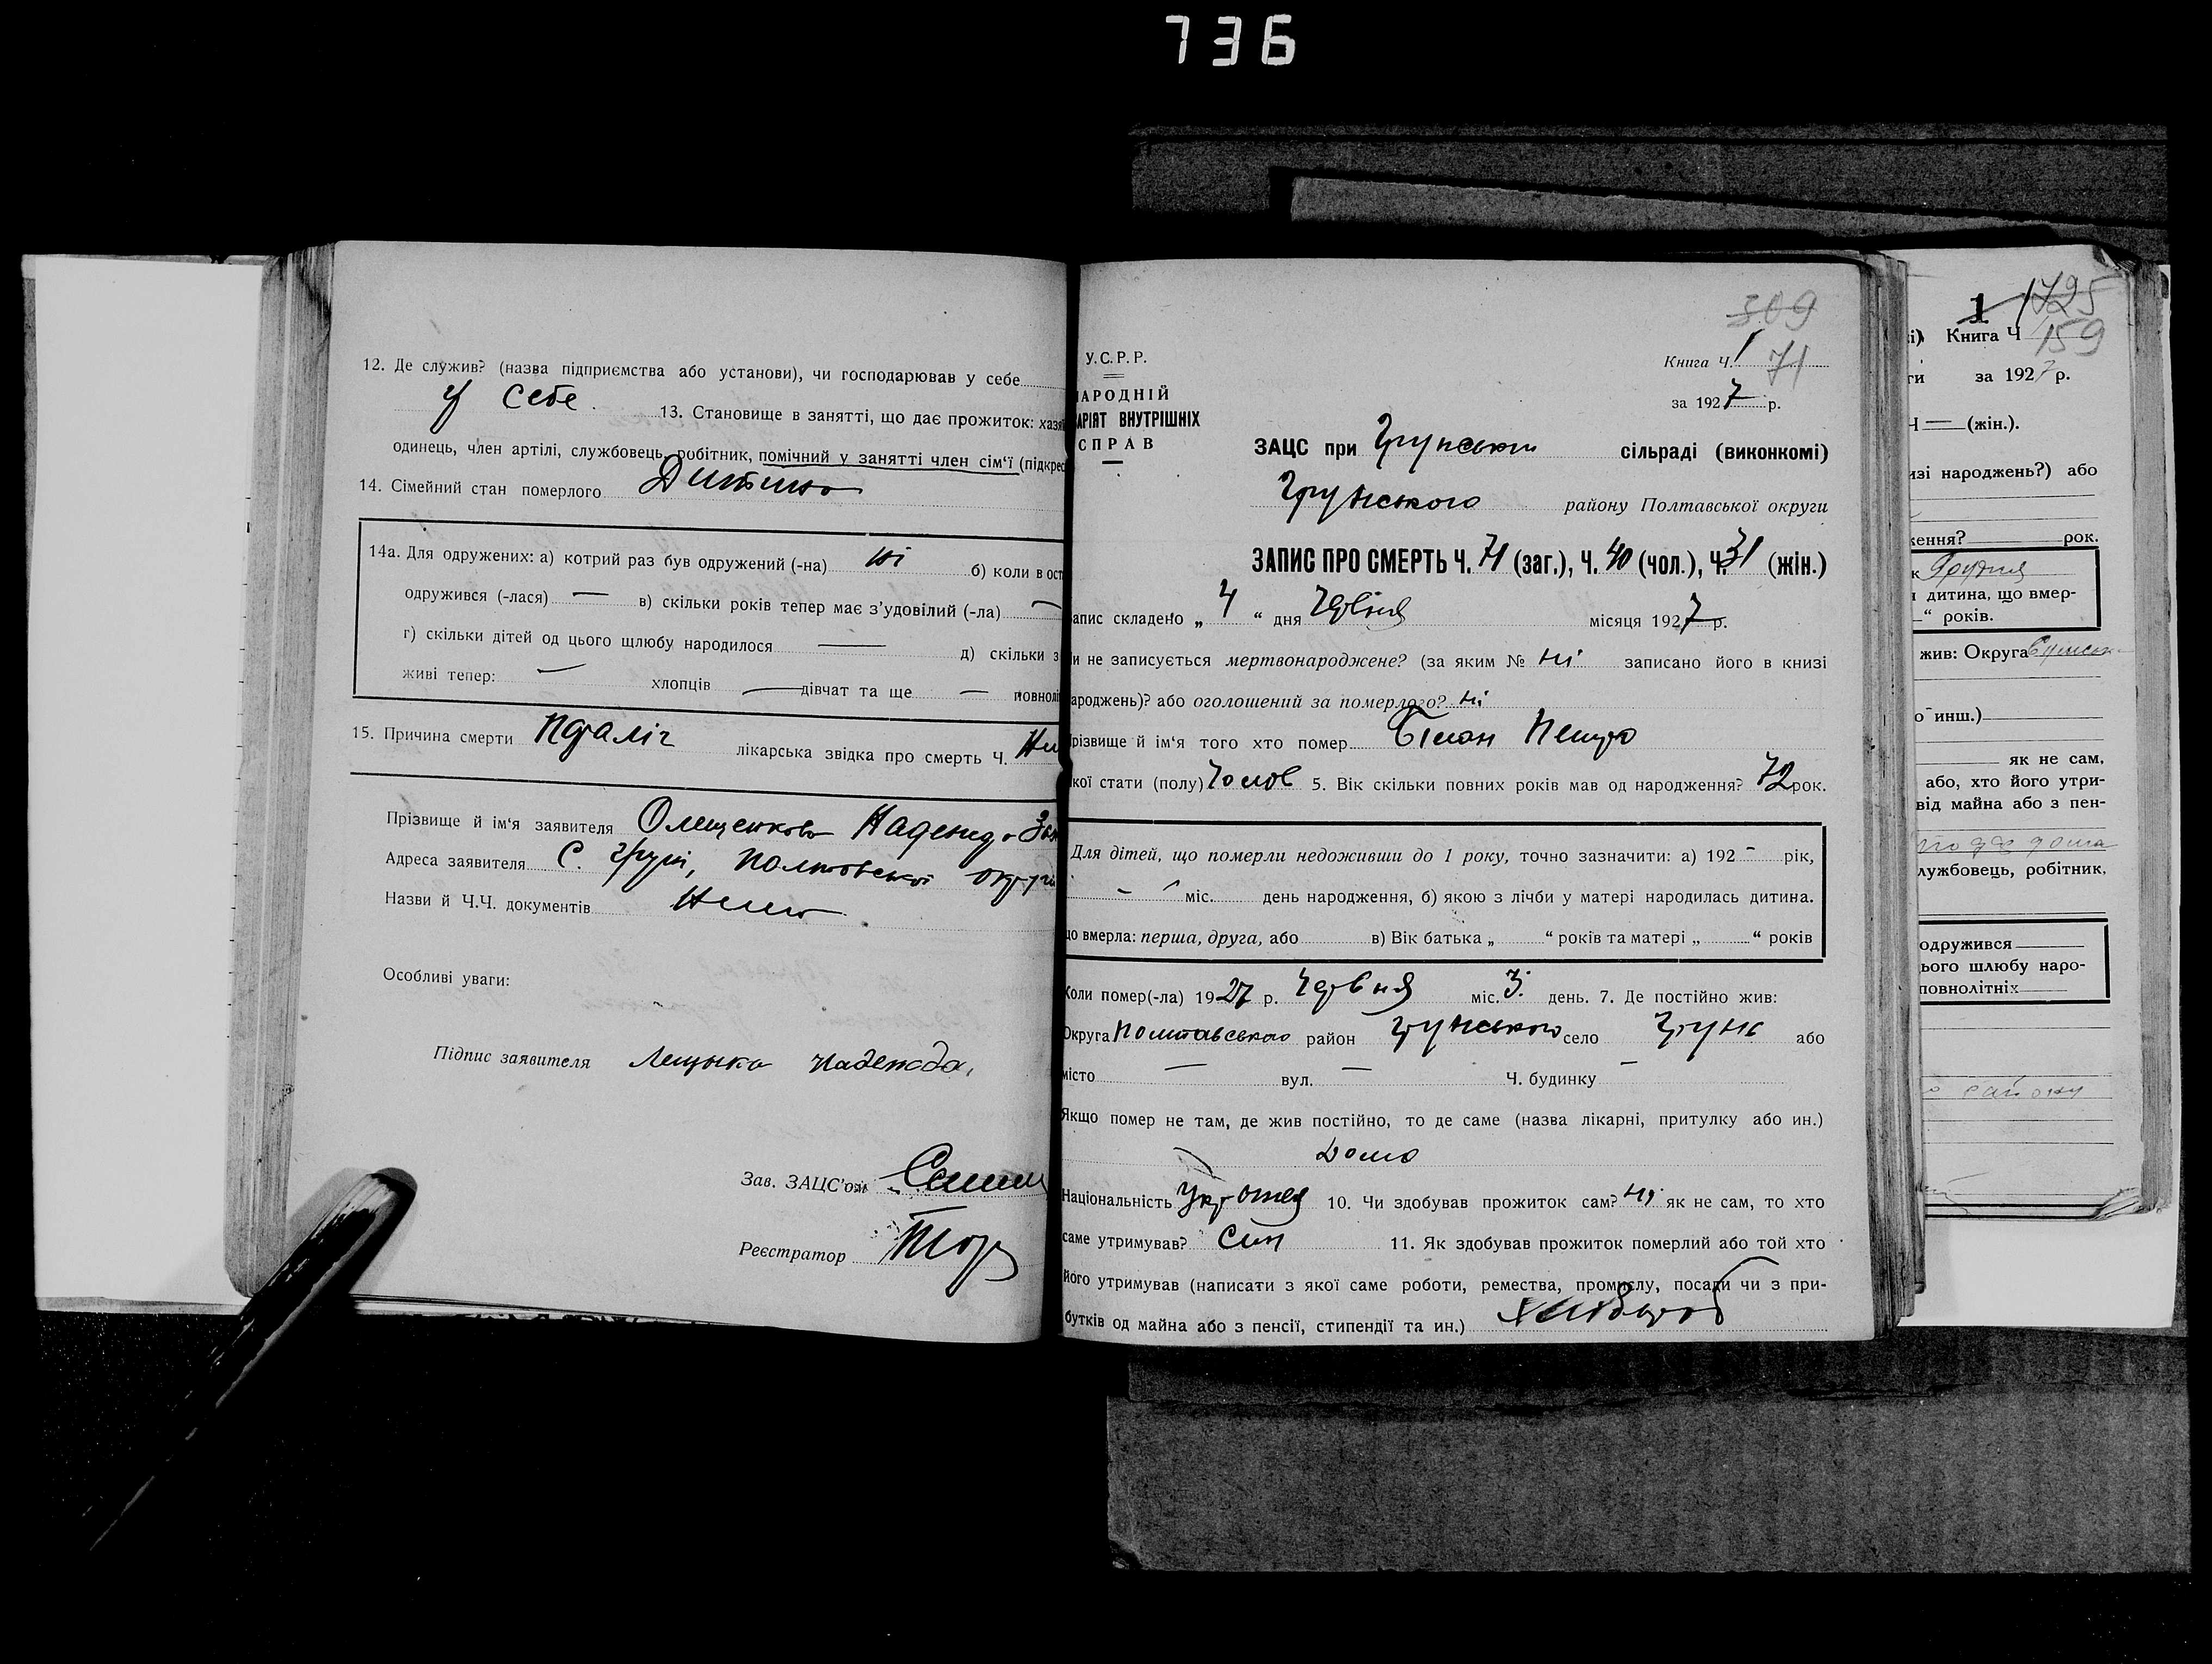 736
12. Де служив? (назва підприємства або установи), чи господарював у себе
у себе 13. Становище в занятті, що дає прожиток: хазя
одинець, член артілі, службовець, робітник, помічний у занятті член сім'ї (підкрес
14. Сімейний стан померлого Дитина
14а. Для одружених: а) котрий раз був одружений (-на) ні б) коли в ост
одружився (-лася) — в) скільки років тепер має з'удовілий (-ла) —
г) скільки дітей од цього щлюбу народилося — д) скільки з
живі тепер: — хлопців — дівчат та ще — повнолі
15. Причина смерти лікарська звідка про смерть Ч.
Прізвище й ім'я заявителя Олещенкова
Адреса заявителя С. Грунь, Полтовської округи
Назви й Ч.Ч. документів Нема
Особливі уваги:
Підпис заявителя Лещенко Надежда,
Зав. ЗАЦС'ом
Реєстратор
309
У.С.Р.Р.
Книга Ч. 1 71
АРОДНІЙ
за 1927 р.
АРІЯТ ВНУТРІШНІХ
СПРАВ
ЗАЦС при Грунськом сільраді (виконкомі)
Грунського району Полтавської округи
ЗАПИС ПРО СМЕРТЬ Ч. 71 (заг.), Ч. 40 (чол.), Ч. 31 (жін.)
апис складено „ 4 “ дня Червня місяця 1927 р.
и не записується мертвонароджене? (за яким № ні записано його в книзі
ароджень)? або оголошений за померлого? ні
різвище й ім'я того хто помер Петро
кої стати (полу) Чолов 5. Вік скільки повних років мав од народження? 72 рок.
Для дітей, що померли недоживши до 1 року, точно зазначити: а) 192 - рік,
- міс. день народження, б) якою з лічби у матері народилась дитина.
що вмерла: перша, друга, або в) Вік батька „ “ років та матері „ “ років
Коли помер(-ла) 1927 р. Червня міс. 3. день. 7. Де постійно жив:
Округа Полтавського район Грунського село Грунь або
місто — вул. — Ч. будинку —
Якщо помер не там, де жив постійно, то де саме (назва лікарні, притулку або ин.)
Дома
Національність 10. Чи здобував прожиток сам? ні як не сам, то хто
саме утримував? Син 11. Як здобував прожиток померлий або той хто
його утримував (написати з якої саме роботи, ремества, промислу, посади чи з при-
бутків од майна або з пенсії, стипендії та ин.) Хлібороб
1 1725
і) Книга Ч 159
ги за 1927 р.
Ч — (жін.).
изі народжень?) або
ження? рок.
к Грудня
дитина, що вмер-
“ років.
жив: Округа
о инш.)
як не сам,
або, хто його утри-
від майна або з пен-
лужбовець, робітник,
одружився
ього шлюбу наро-
повнолітніх
району